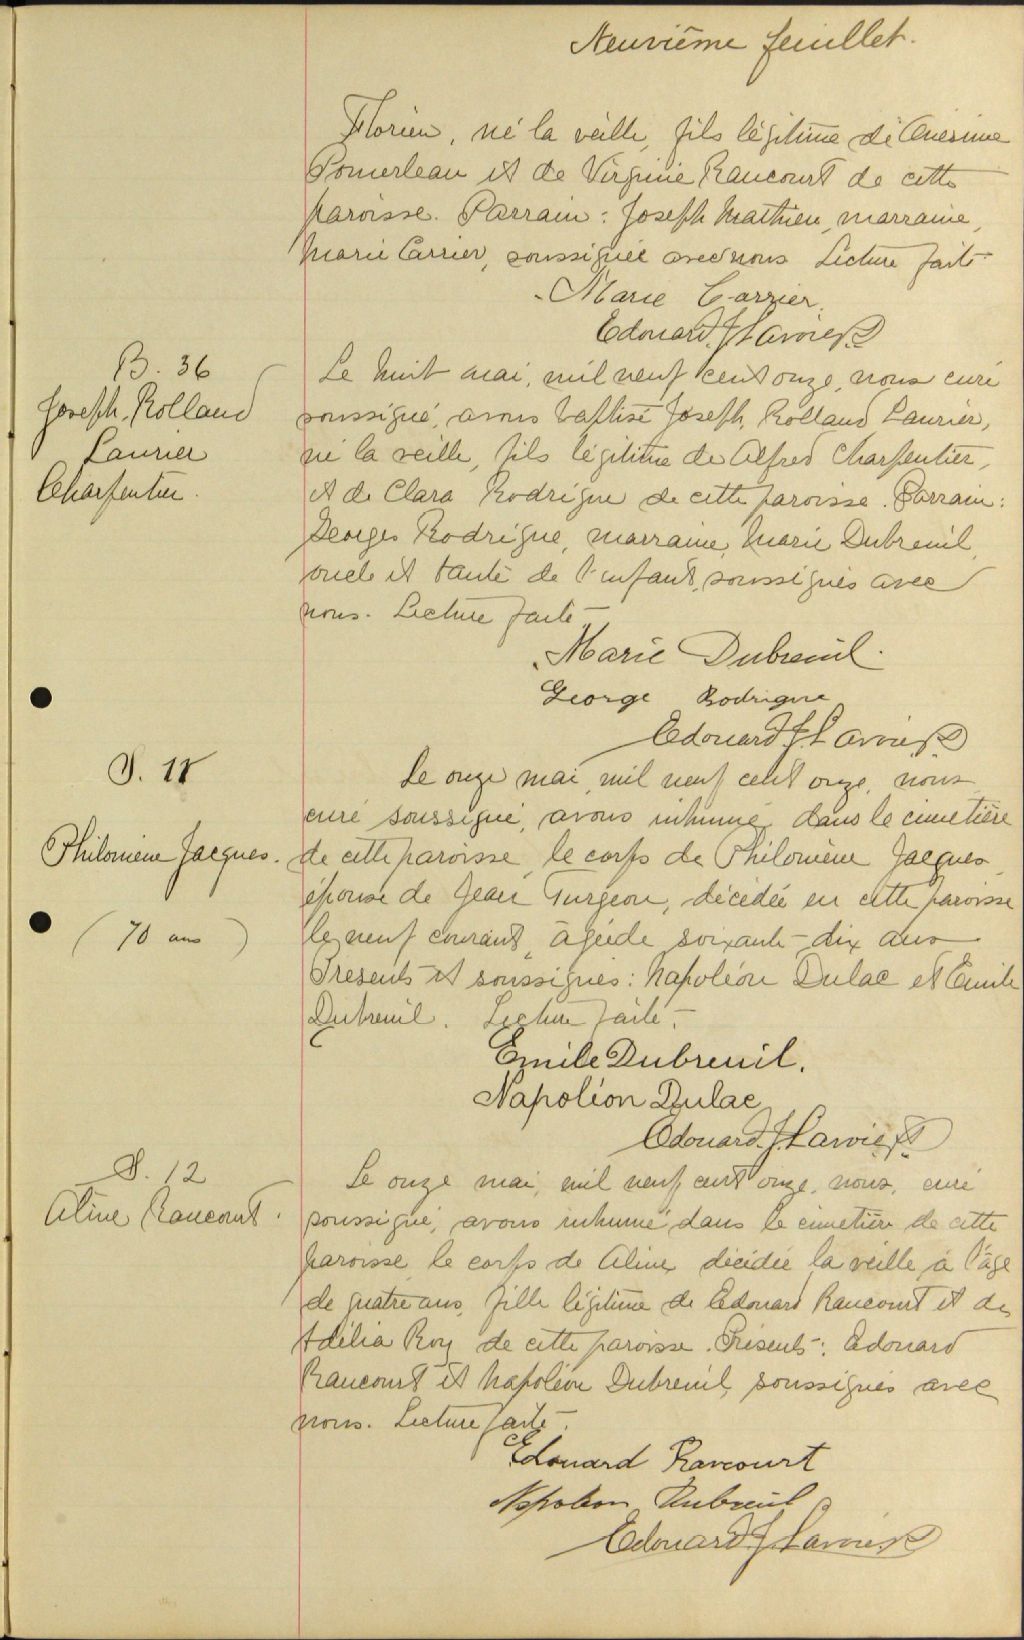 Neuvième feuillet.
Florien, né la veille, fils légitime de Onésime
Pomerleau et de Virginie Rancourt de cette
paroisse. Parrain: Joseph Mathieu, marraine,
Marie Carrier, soussignée avec nous Lecture faite
Marie Carrier.
Edouard J. Lavoie
B. 36
Joseph, Rolland
Laurier
Charpentier.
Le huit mai, mil neuf cent onze, nous curé
soussigné, avons baptisé Joseph, Rolland Laurier,
né la veille, fils légitime de Alfred Charpentier,
et de Clara Rodrigue de cette paroisse. Parrain:
Georges Rodrigue, marraine, Marie Dubreuil,
oncle et tante de l'enfant, soussignés avec
nous. Lecture faite
Marie Dubreuil.
George Rodrigue
Edouard J. Lavoie
S. 11
Philomène Jacques.
(70 ans)
Le onze mai, mil neuf cent onze, nous
curé soussigné, avons inhumé dans le cimetière
de cette paroisse, le corps de Philomène Jacques
épouse de Jean Turgeon, décédée en cette paroisse
le neuf courant, âgée de soixante-dix ans
Présents et soussignés: Napoléon Dulac et Emile
Dubreuil. Lecture faite.
Emile Dubreuil.
Napoléon Dulac
Edouard J. Lavoie
S. 12
Aline Rancourt.
Le onze mai, mil neuf cent onze, nous, curé
soussigné, avons inhumé dans le cimetière de cette
paroisse le corps de Aline, décédée la veille à l'âge
de quatre ans, fille légitime de Edouard Rancourt et de
Adélia Roy de cette paroisse. Présents: Edouard
Rancourt et Napoléon Dubreuil, soussignés avec
nous. Lecture faite.
Edouard Rancourt
Napoleon Dubreuil
Edouard J. Lavoie